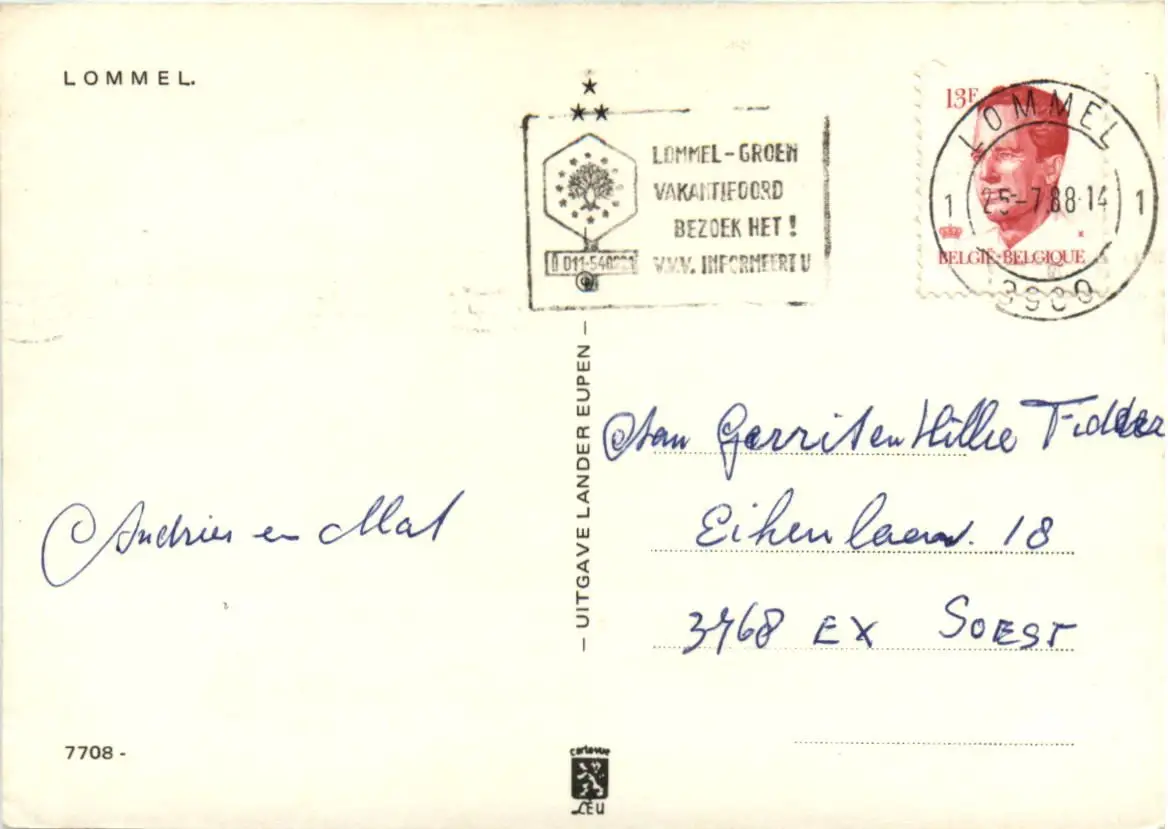 LOMMEL.
LOMMEL-GROEN
VAKANTIEOORD
BEZOEK HET !
V.V.V. INFORMEERT U
13F
LOMMEL
1 25-7.88-14 1
BELGIË-BELGIQUE
3900
— UITGAVE LANDER EUPEN —
Aan Gerrit en Hillie Fidder
Eikenlaan. 18
3768 EX SOEST
Andries en Mat
7708 -
cartevue
LEU